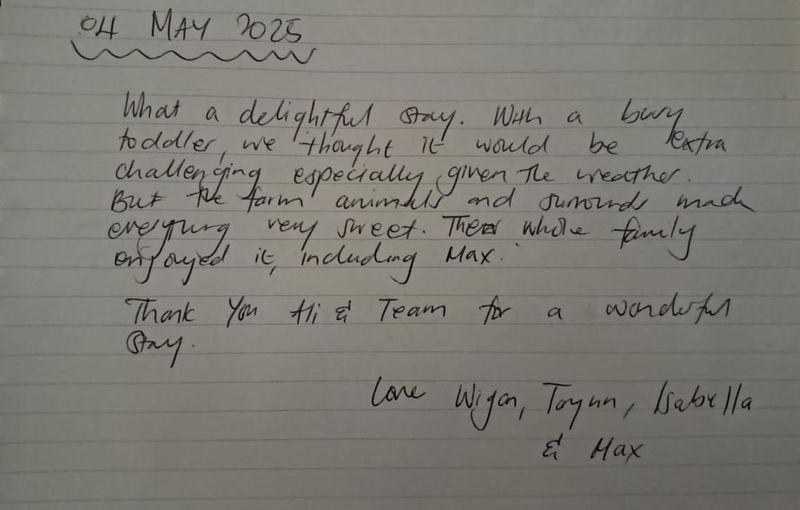 04 MAY 2025
What a delightful stay. With a busy
toddler, we thought it would be extra
challenging especially given the weather.
But the farm animals and surrounds made
everything very sweet. The whole family
enjoyed it, including Max.
Thank You & Team for a wonderful
stay.
Love Wigan, Isabella
& Max